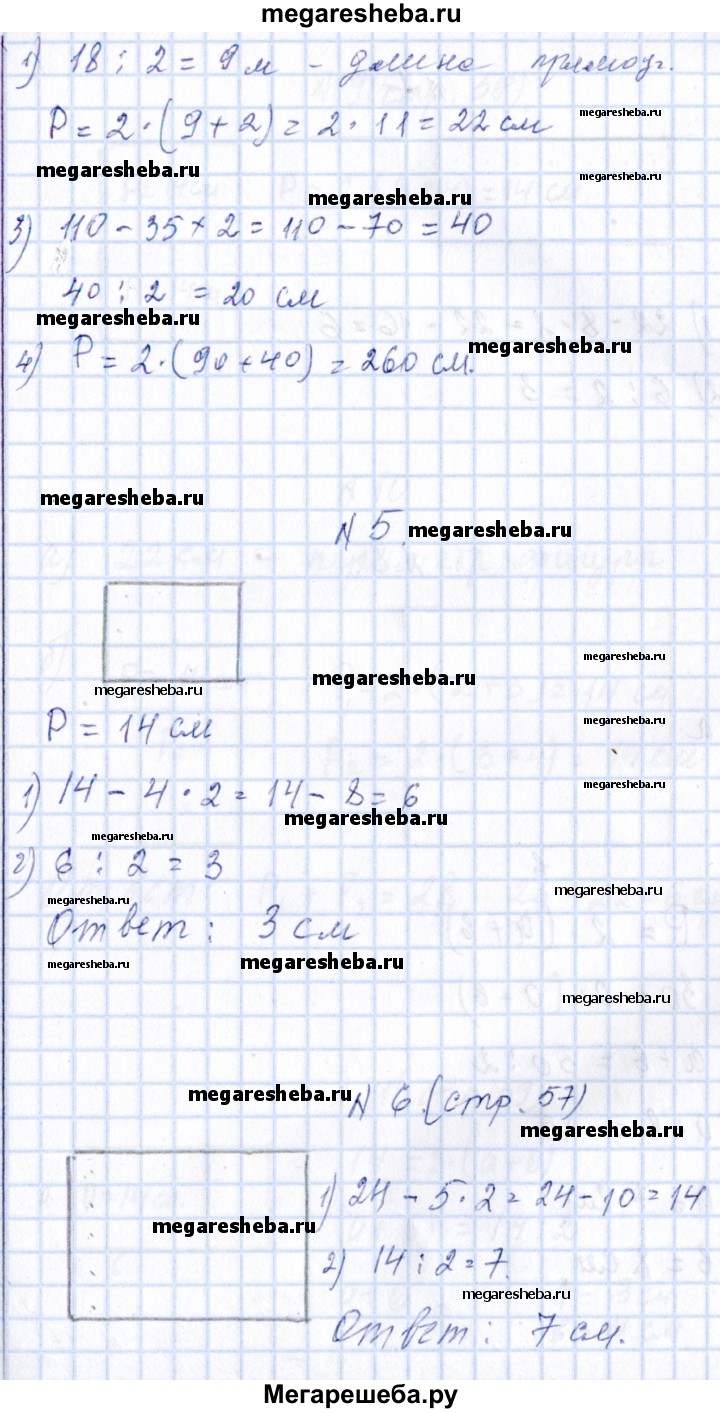 megaresheba.ru
1) 18 : 2 = 9 м - длина прямоуг.
P = 2 · (9 + 2) = 2 · 11 = 22 см
megaresheba.ru
megaresheba.ru
megaresheba.ru
megaresheba.ru
3) 110 - 35 × 2 = 110 - 70 = 40
40 : 2 = 20 см
megaresheba.ru
megaresheba.ru
4) P = 2 · (90 + 40) = 260 см.
megaresheba.ru
N 5.
megaresheba.ru
megaresheba.ru
megaresheba.ru
megaresheba.ru
P = 14 см
megaresheba.ru
megaresheba.ru
1) 14 - 4 · 2 = 14 - 8 = 6
megaresheba.ru
megaresheba.ru
2) 6 : 2 = 3
megaresheba.ru
megaresheba.ru
Ответ: 3 см
megaresheba.ru
megaresheba.ru
megaresheba.ru
megaresheba.ru
N 6. (стр. 57)
megaresheba.ru
1) 24 - 5 · 2 = 24 - 10 = 14
megaresheba.ru
2) 14 : 2 = 7.
megaresheba.ru
Ответ: 7 см.
Мегарешеба.ру